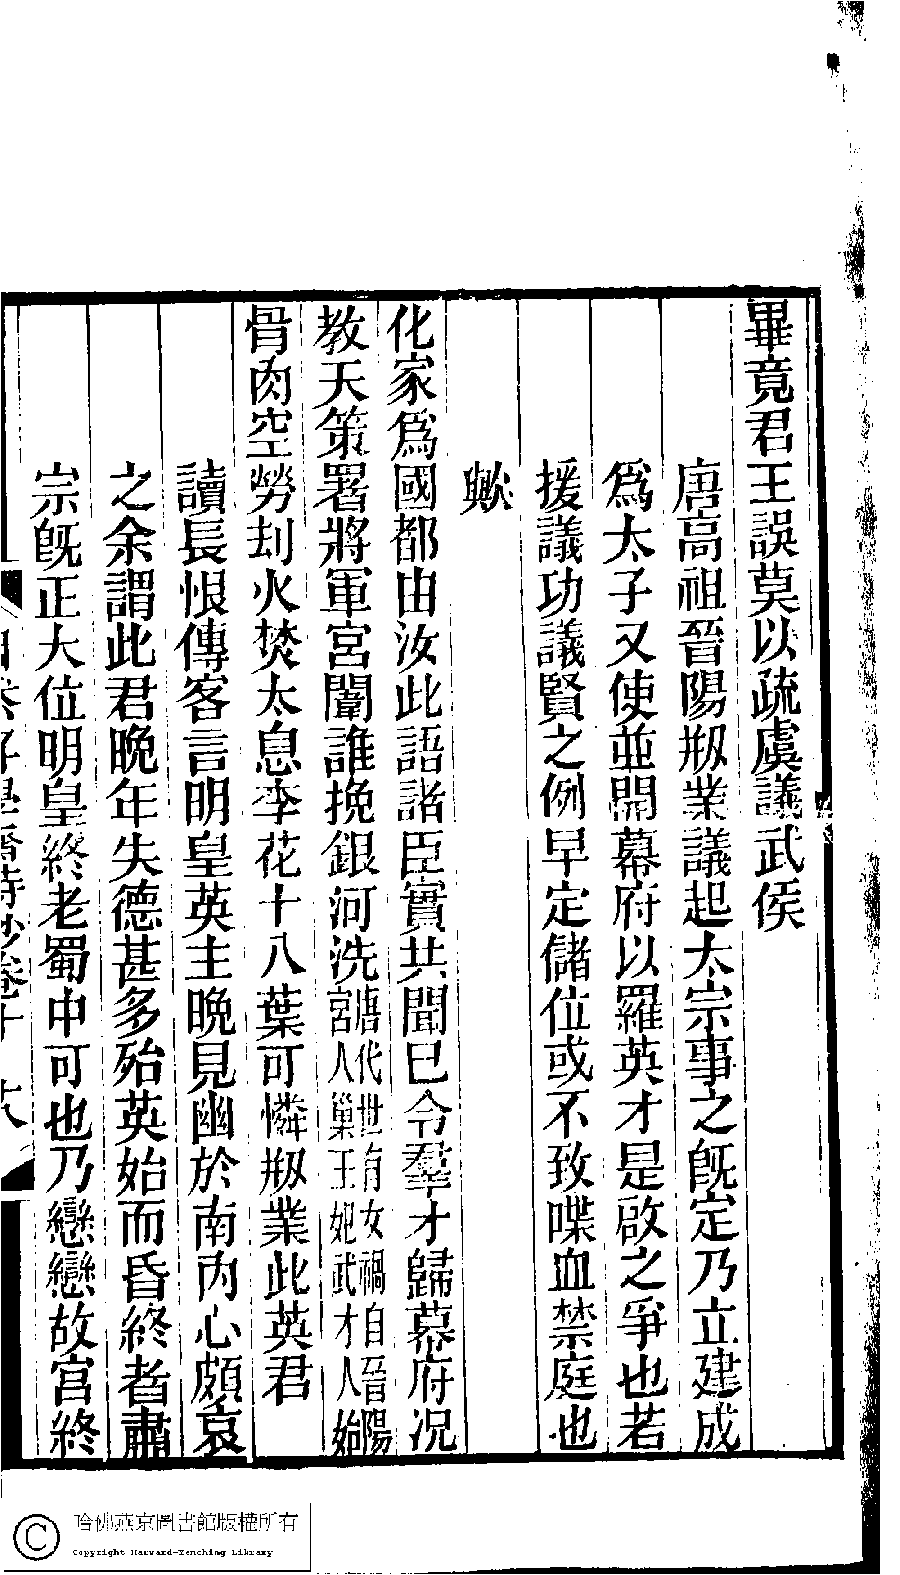 畢竟君王誤莫以疏虞議武侯
唐高祖晉陽剏業議起太宗事之旣定乃立建成
爲太子又使並開幕府以羅英才是啟之爭也若
援議功議賢之例早定儲位或不致喋血禁庭也
歟
化家爲國都由汝此語諸臣實共聞已令羣才歸幕府况
教天策署將軍宮闈誰挽銀河洗唐代世有女禍自晉陽宮人巢王妃武才人始
骨肉空勞刦火焚太息李花十八葉可憐剏業此英君
讀長恨傳客言明皇英主晩見幽於南內心頗哀
之余謂此君晚年失德甚多殆英始而昏終者肅
宗旣正大位明皇終老蜀中可也乃戀戀故宮終
好學齋詩鈔卷十 十八
哈佛燕京圖書館版權所有
Copyright Harvard-Yenching Library